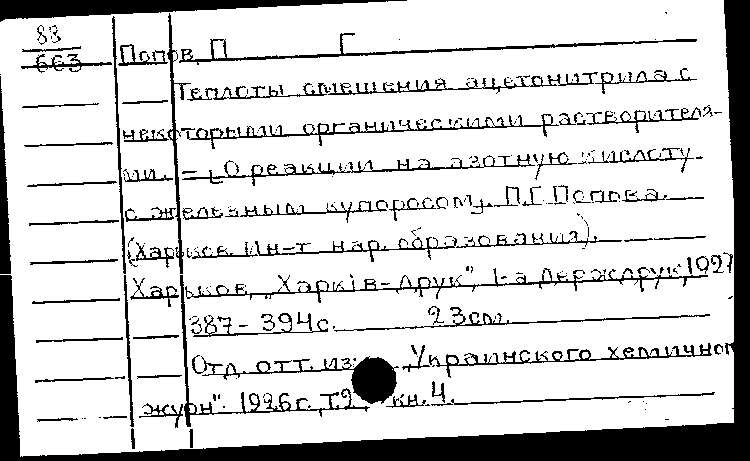 88
663
Попов, П Г
Теплоты смешения ацетонитрила с
некоторыми органическими растворителя-
ми. – [О реакции на азотную кислоту
с железным купоросом]. П.Г. Попова.
(Харьков. Ин-т нар. образования).
Харьков, „Харкiв-Друк", 1-а Держдрук, 1927
387-394 с. 23 см.
Отд. отт. из „Украинского хемичног
журн". 1926 г., т. 2, кн. 4.